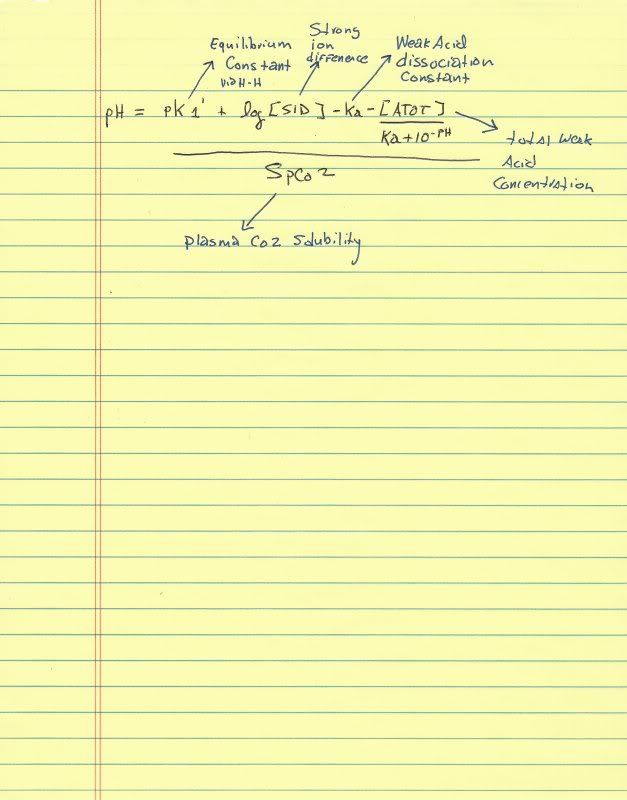 Equilibrium
Constant
via H-H
Strong
ion
difference
Weak Acid
dissociation
Constant
pH = pK1' + log [SID] - Ka - [ATOT]
Ka + 10^-pH
SpCO2
total Weak
Acid
Concentration
plasma CO2 Solubility